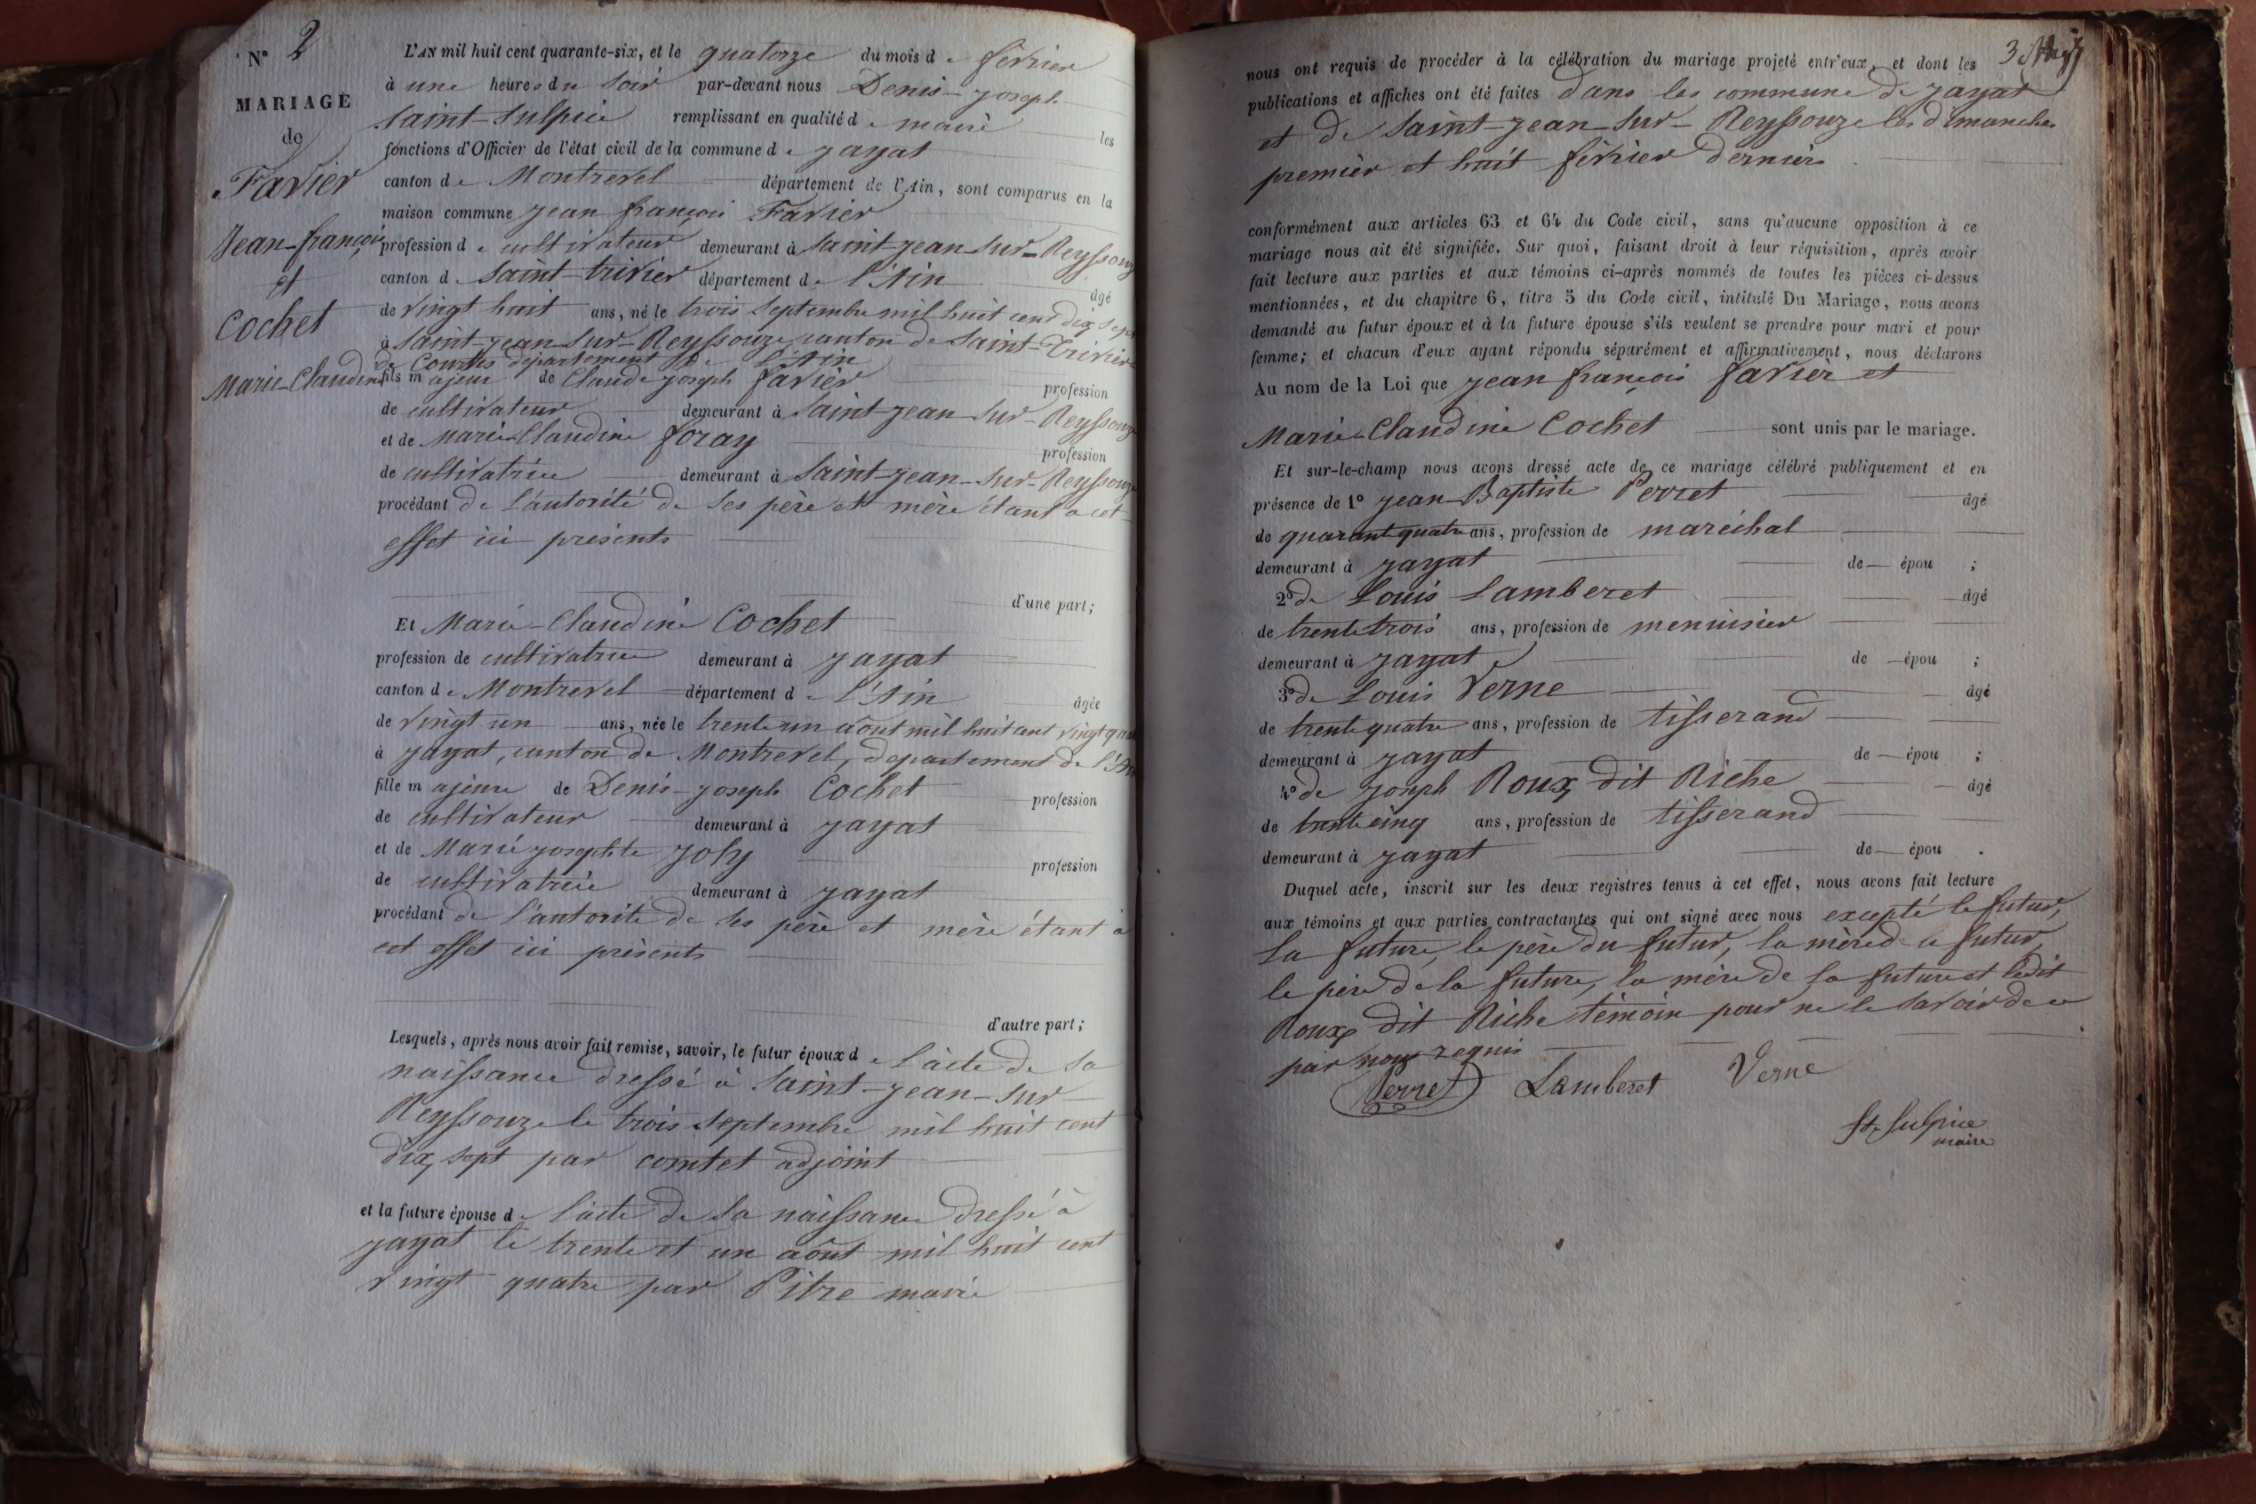 N° 2
MARIAGE
de
Favier
Jean-françois
et
Cochet
Marie-Claudine
L'AN mil huit cent quarante-six, et le quatorze du mois de février
à une heure du soir par-devant nous Denis-joseph
saint-sulpice remplissant en qualité de maire les
fonctions d'Officier de l'état civil de la commune de jayat
canton de Montrevel département de l'Ain, sont comparus en la
maison commune jean françois Favier
profession de cultivateur demeurant à saint-jean-sur-Reyssouze
canton de saint-trivier département de l'Ain âgé
de vingt huit ans, né le trois septembre mil huit cent dix sept
à saint-jean-sur-Reyssouze canton de saint-Trivier
de Courtes département de l'Ain
fils majeur de Claude joseph favier profession
de cultivateur demeurant à saint-jean-sur-Reyssouze
et de Marie-Claudine foray profession
de cultivatrice demeurant à saint-jean-sur-Reyssouze
procédant de l'autorité de ses père et mère étant a cet
effet ici présents
d'une part;
Et Marie-Claudine Cochet
profession de cultivatrice demeurant à jayat
canton de Montrevel département de l'Ain âgée
de vingt un ans, née le trente un août mil huit cent vingt quatre
à jayat, canton de Montrevel, département de l'Ain
fille majeure de Denis-joseph Cochet profession
de cultivateur demeurant à jayat
et de Marie josephte joly profession
de cultivatrice demeurant à jayat
procédant de l'autorité de ses père et mère étant à
cet effet ici présents
d'autre part;
Lesquels, après nous avoir fait remise, savoir, le futur époux de l'acte de sa
naissance dressé à saint-jean-sur-
Reyssouze le trois septembre mil huit cent
dix sept par comtet adjoint
et la future épouse de l'acte de sa naissance dressé à
jayat le trente et un août mil huit cent
vingt quatre par Pitre maire
3
nous ont requis de procéder à la célébration du mariage projeté entr'eux, et dont les
publications et affiches ont été faites dans les commune de jayat
et de saint-jean-sur-Reyssouze les dimanches
premier et huit février dernier
conformément aux articles 63 et 64 du Code civil, sans qu'aucune opposition à ce
mariage nous ait été signifiée. Sur quoi, faisant droit à leur réquisition, après avoir
fait lecture aux parties et aux témoins ci-après nommés de toutes les pièces ci-dessus
mentionnées, et du chapitre 6, titre 5 du Code civil, intitulé Du Mariage, nous avons
demandé au futur époux et à la future épouse s'ils veulent se prendre pour mari et pour
femme; et chacun d'eux ayant répondu séparément et affirmativement, nous déclarons
Au nom de la Loi que jean françois favier et
Marie-Claudine Cochet sont unis par le mariage.
Et sur-le-champ nous avons dressé acte de ce mariage célébré publiquement et en
présence de 1° jean-Baptiste Perret âgé
de quarant quatre ans, profession de maréchal
demeurant à jayat de épou ;
2° de Louis Lamberet âgé
de trente trois ans, profession de menuisier
demeurant à jayat de épou ;
3° de Louis Verne âgé
de trente quatre ans, profession de tisserand
demeurant à jayat de épou ;
4° de joseph Roux dit Riche âgé
de trente cinq ans, profession de tisserand
demeurant à jayat de épou .
Duquel acte, inscrit sur les deux registres tenus à cet effet, nous avons fait lecture
aux témoins et aux parties contractantes qui ont signé avec nous excepté le futur,
la future, le père du futur, la mère de futur,
le père de la future, la mère de la future et ledit
Roux dit Riche témoin pour ne le savoir de ce
par nous requis
Perret Lamberet Verne
St Sulpice
maire